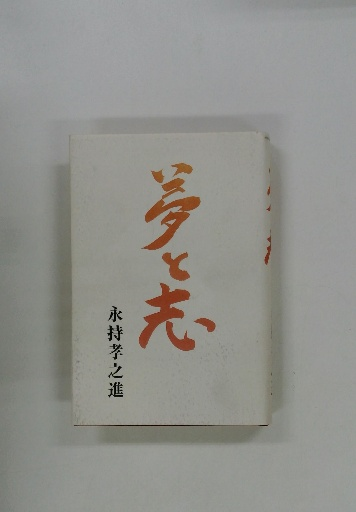 夢と志
永持孝之進